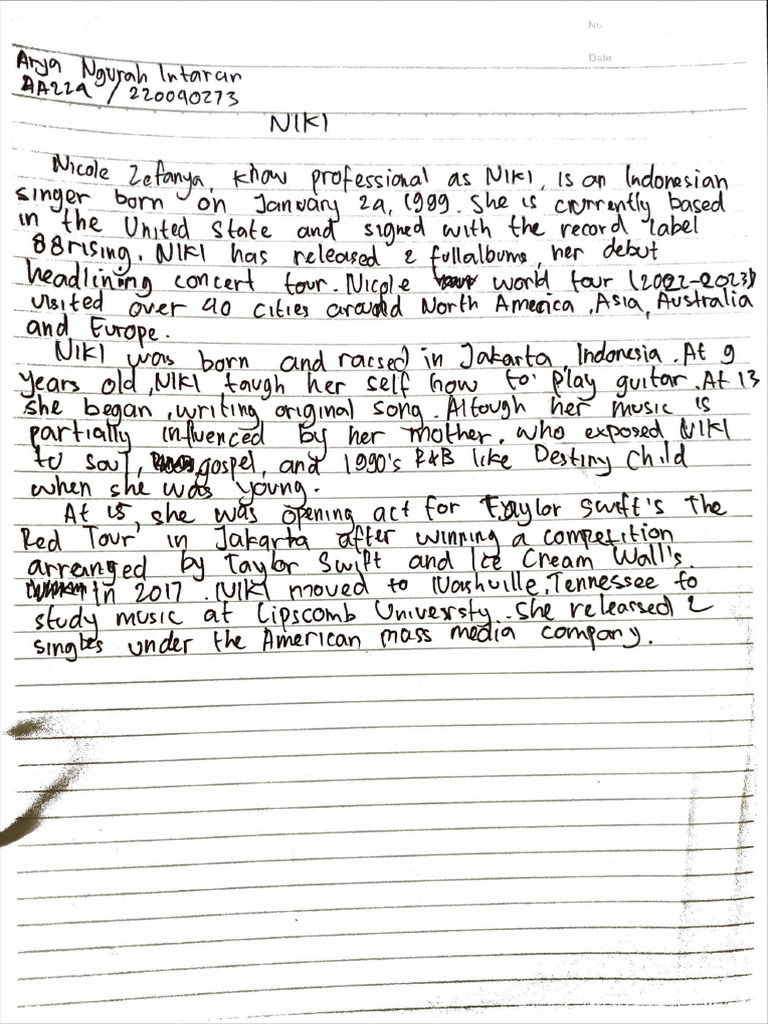 No
Date
Arya Ngurah Intaran
AA22a / 220090273
NIKI
Nicole Zefanya, know professional as NIKI, is an Indonesian
singer born on January 2a, 1999. She is currently based
in the United State and signed with the record label
88rising. NIKI has released 2 fullalbums, her debut
headlining concert tour. Nicole world tour (2022-2023)
visited over 40 cities around North America, Asia, Australia
and Europe.
NIKI was born and racsed in Jakarta, Indonesia. At 9
years old, NIKI taugh her self how to play guitar. At 13
she began, writing original song. Altough her music is
partially influenced by her mother. who exposed NIKI
to soul, gospel, and 1990's R&B like Destiny Child
when she was young.
At 15, she was opening act for Taylor Swift's The
Red Tour in Jakarta after winning a competition
arranged by Taylor Swift and Ice Cream Wall's.
In 2017. NIKI moved to Nashville, Tennessee to
study music at Lipscomb Universty. She released 2
singles under the American mass media company.